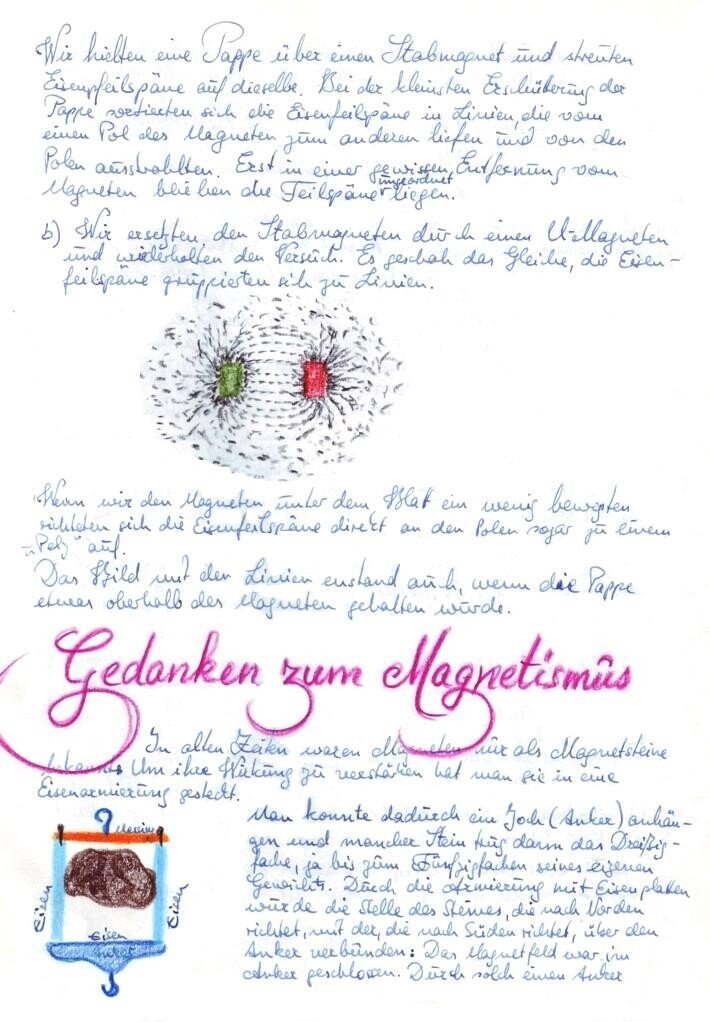 Wir hielten eine Pappe über einen Stabmagnet und streuten
Eisenpfeilspäne auf dieselbe. Bei der kleinsten Erschüterung der
Pappe sortierten sich die Eisenfeilspäne in Linien, die vom
einen Pol des Magneten zum anderen liefen und von den
Polen ausstrahlten. Erst in einer gewissen Entfernung vom
Magneten blieben die Feilspäne ungeordnet liegen.
b) Wir ersetzten den Stabmagneten durch einen U-Magneten
und wiederholten den Versuch. Es geschah das Gleiche, die Eisen-
feilspäne gruppierten sich zu Linien.
Wenn wir den Magneten unter dem Blatt ein wenig bewegten
richteten sich die Eisenfeilspäne direkt an den Polen sogar zu einem
"Pelz" auf.
Das Bild mit den Linien enstand auch, wenn die Pappe
etwas oberhalb des Magneten gehalten wurde.
Gedanken zum Magnetismus
In alten Zeiten waren Magneten nur als Magnetsteine
bekannt. Um ihre Wirkung zu verstärken hat man sie in eine
Eisenarmierung gesteckt.
Man konnte dadurch ein Joch (Anker) anhän-
gen und mancher Stein trug dann das Dreißig-
fache, ja bis zum Fünfzigfachen seines eigenen
Gewichts. Durch die Armierung mit Eisenplatten
wurde die Stelle des Steines, die nach Norden
richtet, mit der, die nach Süden richtet, über den
Anker verbunden: Das Magnetfeld war im
Anker geschlossen. Durch solch einen Anker
Messing
Eisen
Eisen
Eisen
Anker